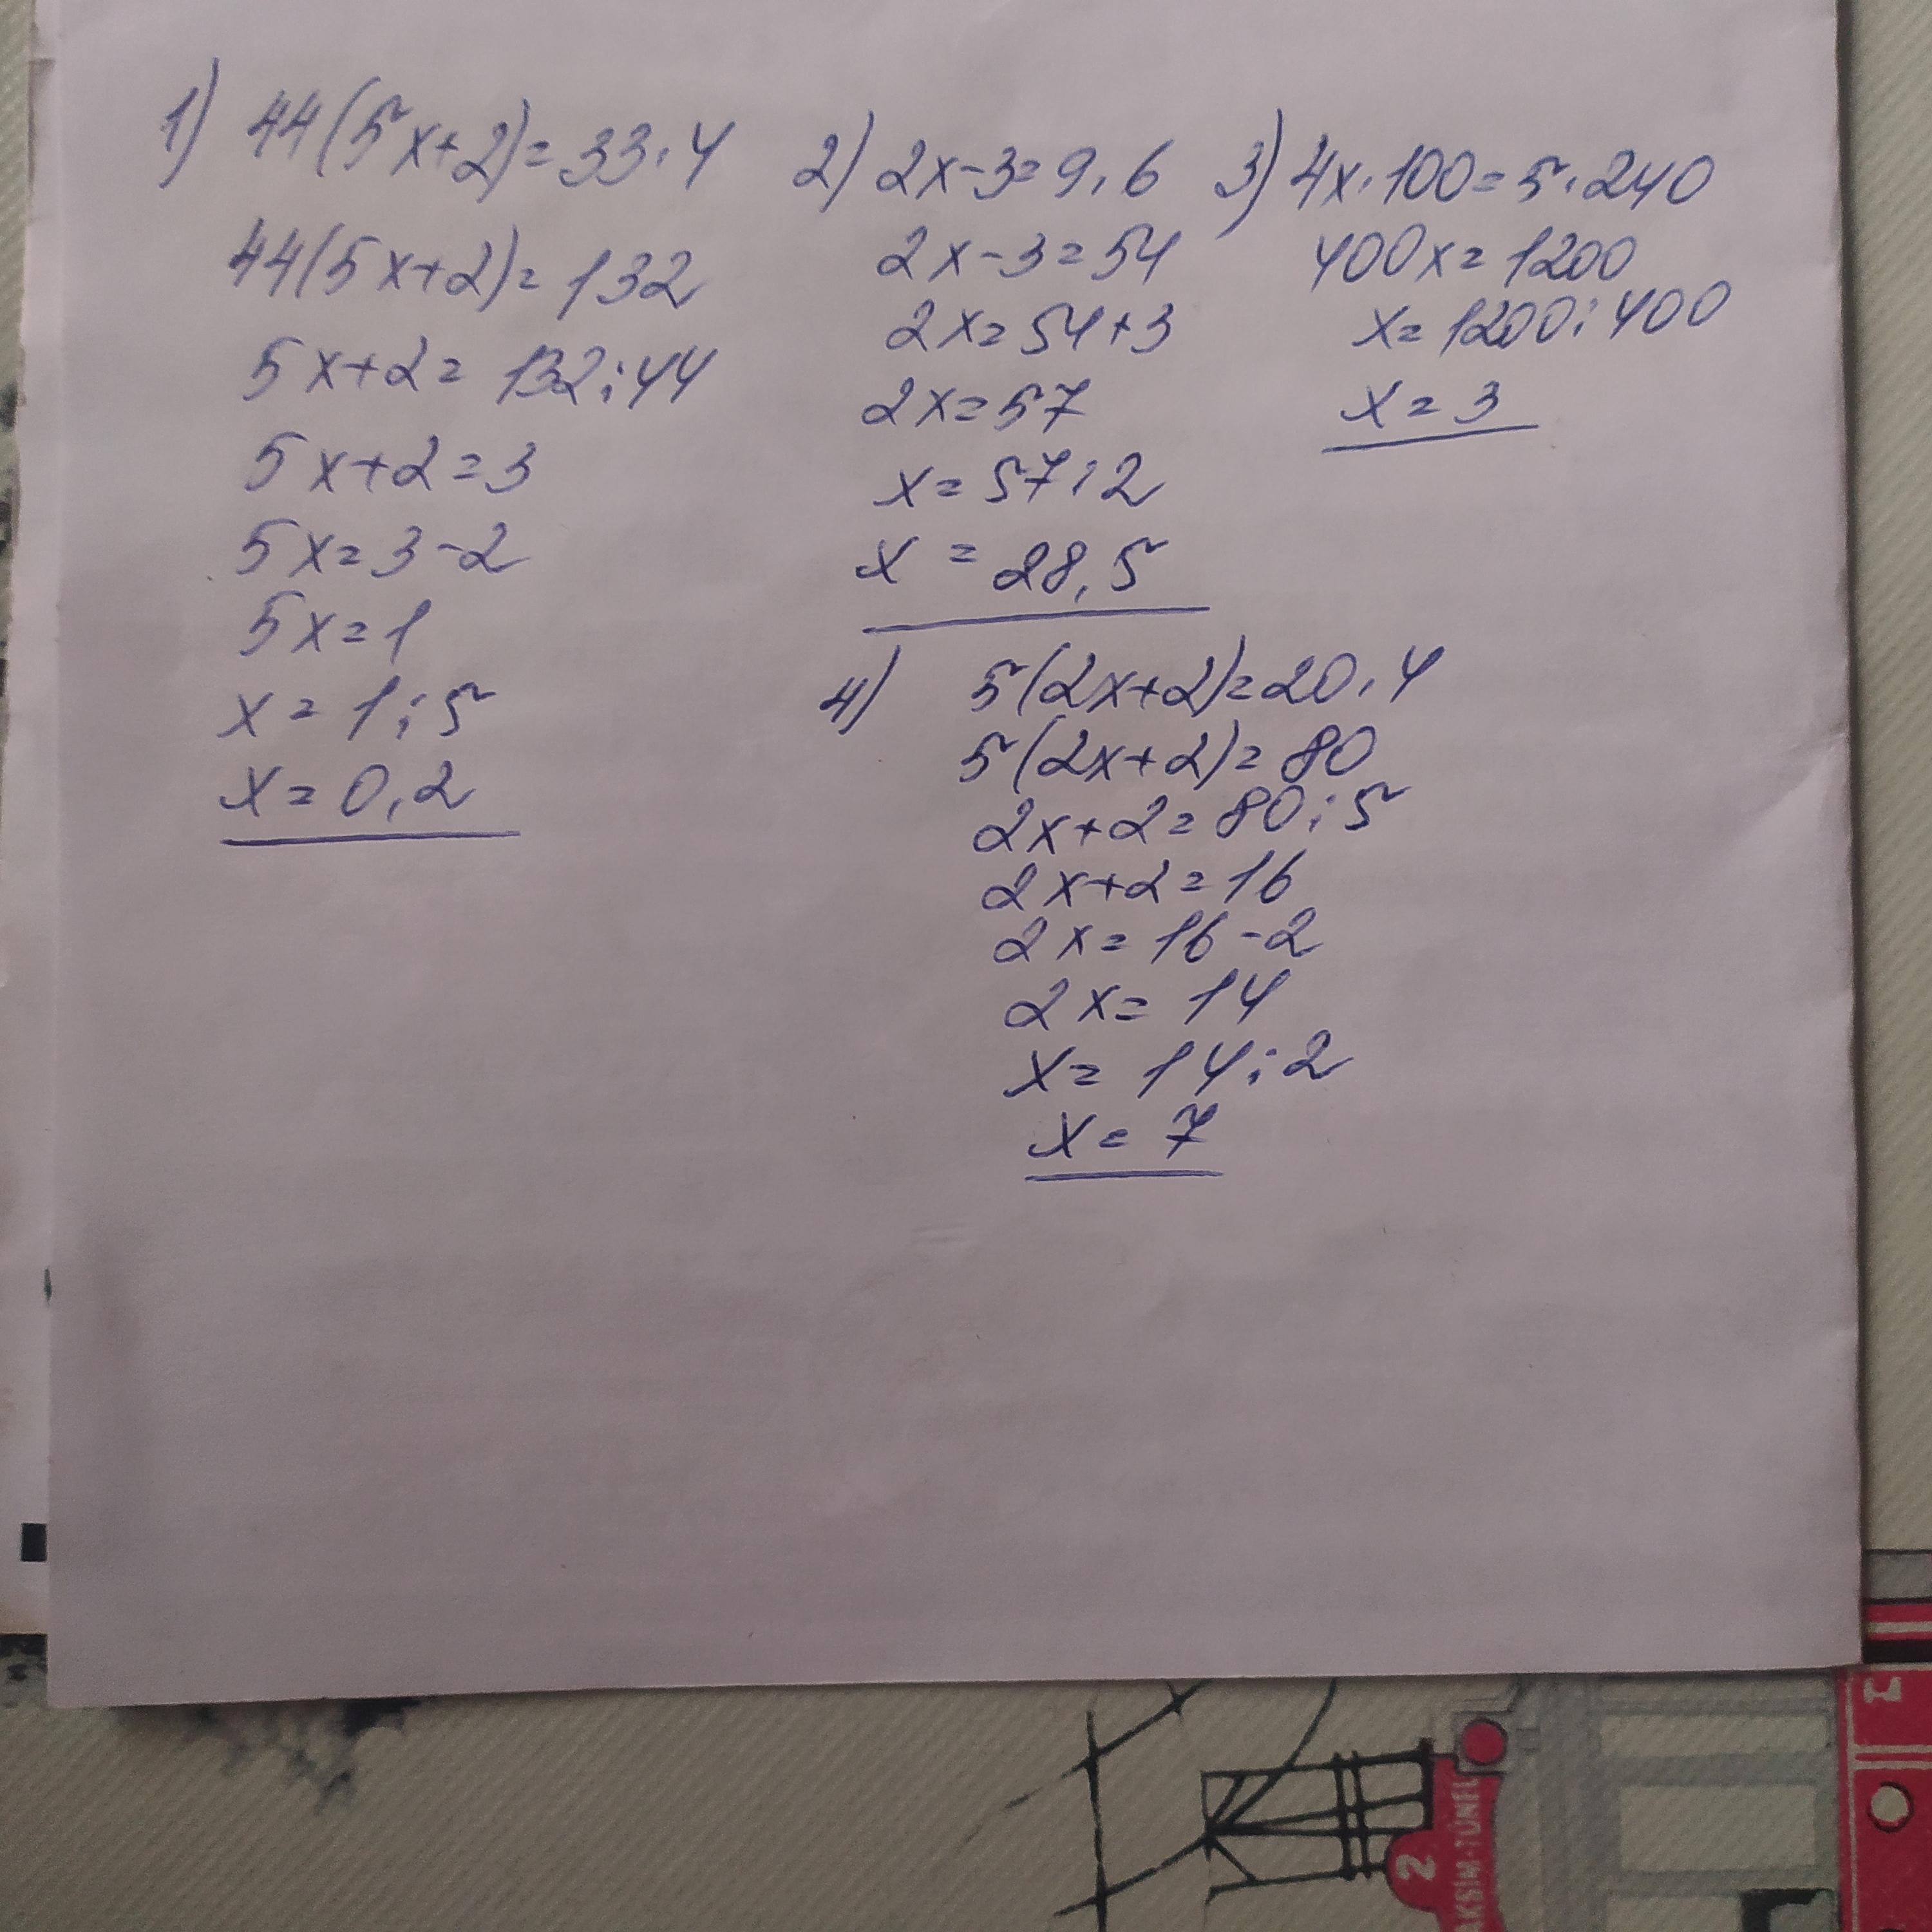 1) 44(5x+2)=33·4
44(5x+2)=132
5x+2=132:44
5x+2=3
5x=3-2
5x=1
x=1:5
x=0,2
2) 2x-3=9·6
2x-3=54
2x=54+3
2x=57
x=57:2
x=28,5
3) 4x·100=5·240
400x=1200
x=1200:400
x=3
4) 5(2x+2)=20·4
5(2x+2)=80
2x+2=80:5
2x+2=16
2x=16-2
2x=14
x=14:2
x=7
2
AKSIM-TÜNEL